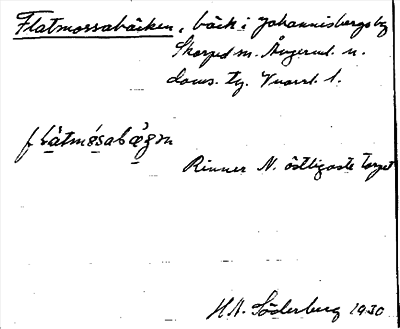 Flatmossabäcken, bäck i Johannisbergs by
Skorped sn. Ångerml. n.
doms. tg. Vuorrl. 1.
flàtmósabǽgɴ
Rinner N. östligaste torpet
H.A. Söderberg 1930